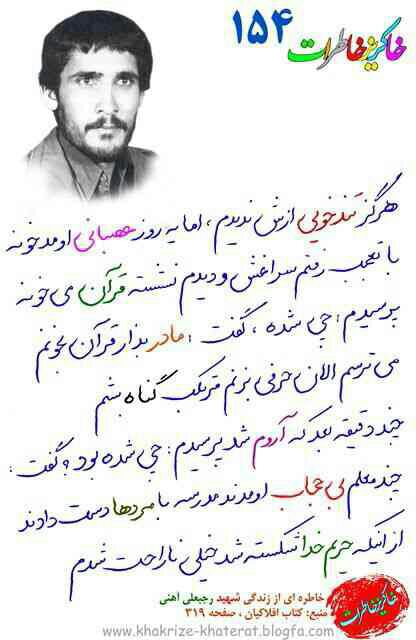 خاکریز خاطرات ۱۵۴
هرگز تندخویی ازش ندیدم ، اما یه روز عصبانی اومد خونه
با تعجب رفتم سراغش و دیدم نشسته قرآن می خونه
پرسیدم : چی شده ، گفت : مادر بذار قرآن بخونم
می ترسم الان حرفی بزنم مرتکب گناه بشم
چند دقیقه بعد که آروم شد پرسیدم : چی شده بود ؟ گفت :
چند معلم بی حجاب اومدند مدرسه با مردها دست دادند
از اینکه حریم خدا شکسته شد خیلی ناراحت شدم
خاطره ای از زندگی شهید رجبعلی آهنی
منبع: کتاب افلاکیان ، صفحه ۳۱۹
خاکریز خاطرات
www.khakrize-khaterat.blogfa.com